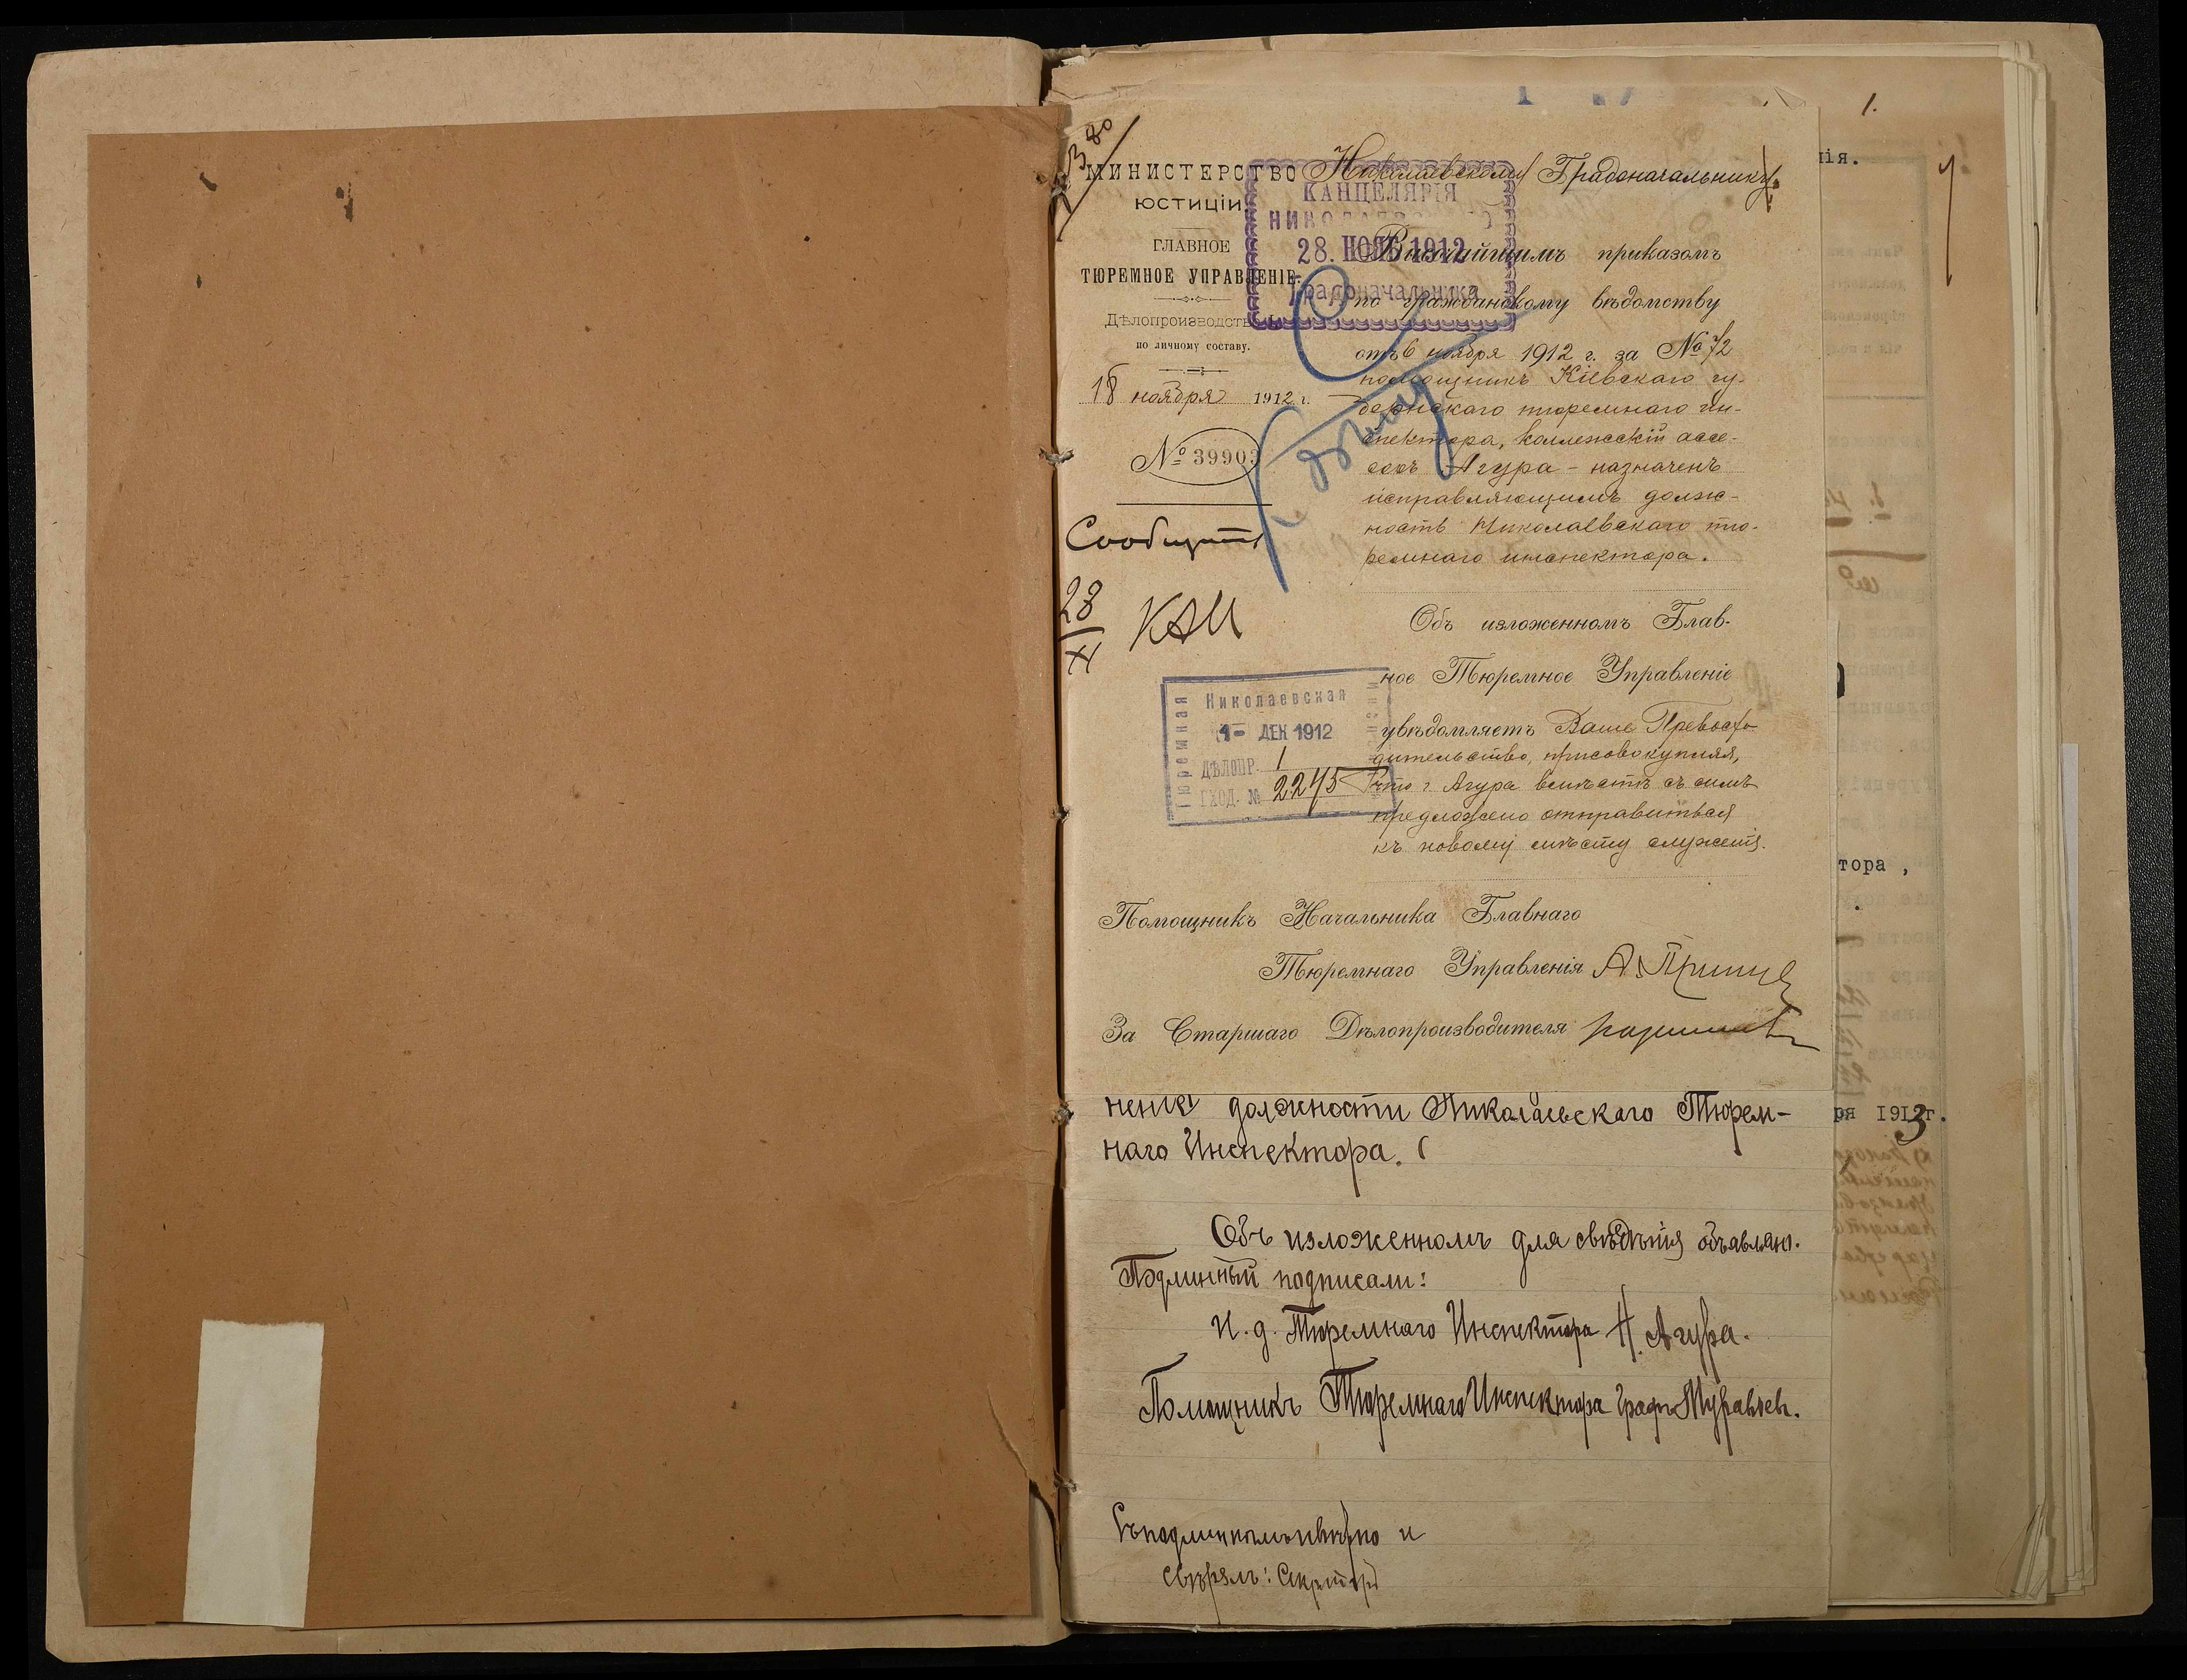 1.
МИНИСТЕРСТВО
ЮСТИЦІИ
ГЛАВНОЕ
ТЮРЕМНОЕ УПРАВЛЕНІЕ.
Дѣлопроизводство
по личному составу.
18 ноября 1912 г.
№ 39903
Сообщить
28
XI
Николаевскому Градоначальнику.
КАНЦЕЛЯРІЯ
28. НОЯБ 1912
Градоначальника
Высочайшимъ приказомъ
по гражданскому вѣдомству
отъ 6 ноября 1912 г. за № 72
помощникъ Кіевскаго гу-
бернскаго тюремнаго ин-
спектора, коллежскій ассе-
соръ Агура – назначенъ
исправляющимъ долж-
ность Николаевскаго тю-
ремнаго инспектора.
Объ изложенномъ Глав-
ное Тюремное Управленіе
увѣдомляетъ Ваше Превосхо-
дительство, присовокупляя,
что г. Агура вмѣстѣ съ симъ
предложено отправиться
къ новому мѣсту служенія.
Николаевская
Тюремная
1- ДЕК 1912
ДѢЛОПР. 1
ВХОД. № 2245
Помощникъ Начальника Главнаго
Тюремнаго Управленія
За Старшаго Дѣлопроизводителя
ненію должности Николаевскаго Тюрем-
наго Инспектора.
Объ изложенномъ для свѣдѣнія объявляю.
Подлинный подписали:
И. д. Тюремнаго Инспектора Н. Агура.
Помощникъ Тюремнаго Инспектора Графъ Муравьев.
Съ подлиннымъ вѣрно и
свѣрялъ: Секретарь
нія.
тора,
ря 1913 г.